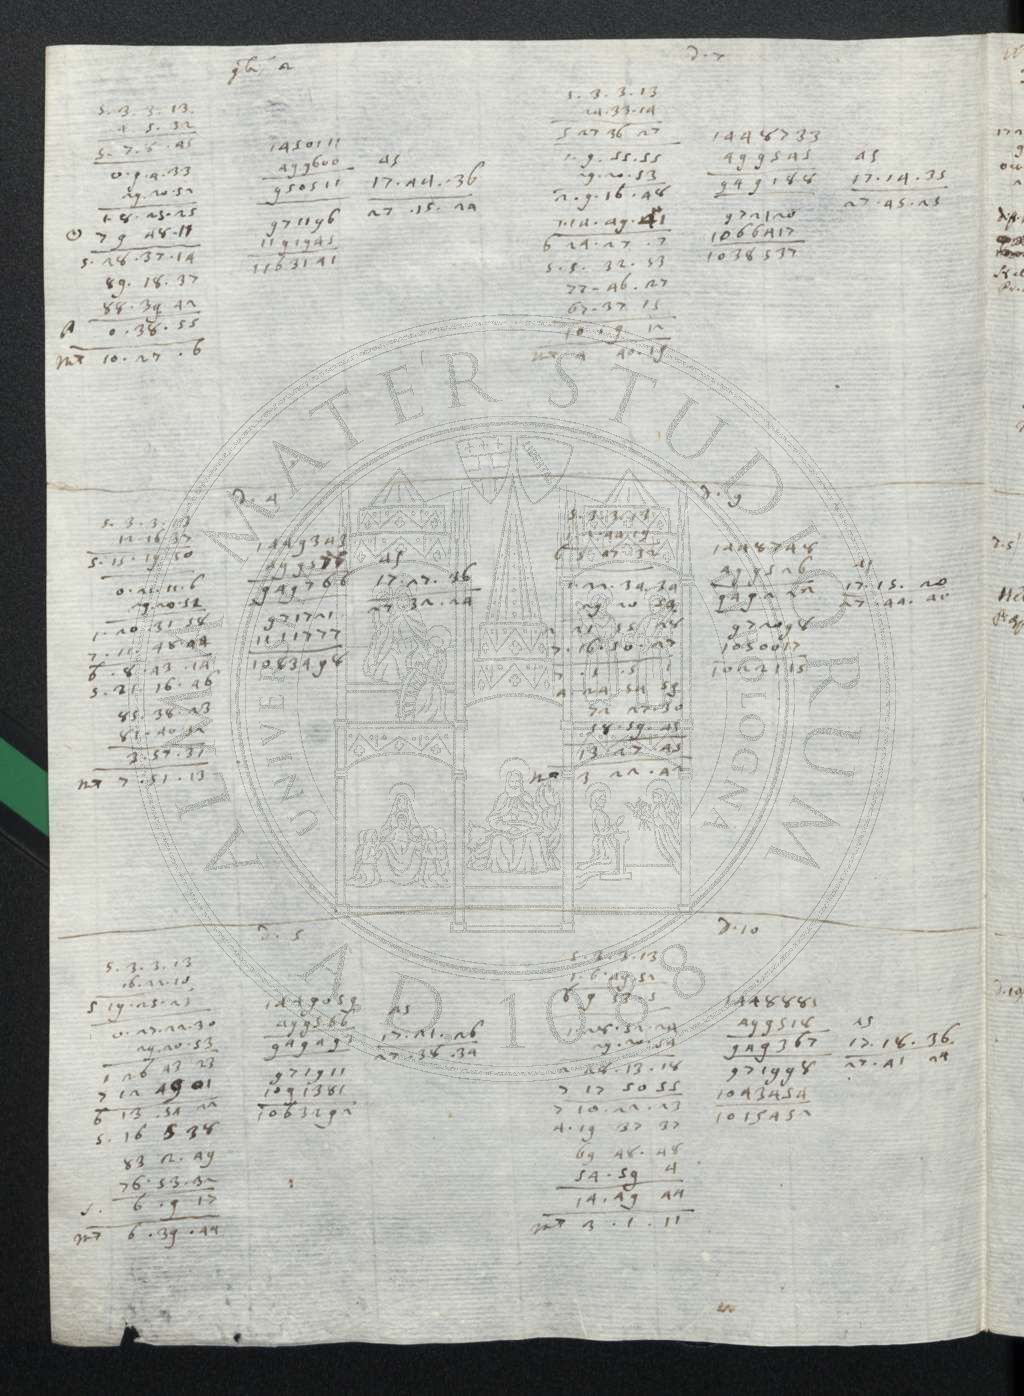 9br 2
5.3.3.13
4.5.32
5.7.8.45
0.9.4.33
29.20.52
1.8.25.25
7 9 48.11
5.28.37.14
89.18.37
88.39 42
0.38.55
10.27.6
1450111
499600
950511
971196
1191945
1163141
45
17.44.36
27.15.24
d.7
5.3.3.13
24.33.14
5 27 36 27
1.9.55.55
29.20.53
2.9.16.48
7.14.49.41
6 24.27.7
5.5.32.53
77.46.27
67.37 15
10.9.12
4 40.19
1448733
499545
949188
972120
1066417
1038537
45
17.14.35
27.45.25
d.4
5.3.3.13
12.16.37
5.15.19.50
0.21.11.6
29.20.52
1.20.31 58
7.11.48.44
6.8.43.14
5.21 16.46
85.38.23
81.40.52
3.57.31
7.51.13
1449343
499577
949766
971721
1111777
1083498
45
17.27.36
27 32.24
d.9
5.3.3.13
2.44.19
6 5.47.32
1.22.34.34
29 20 54
2 21 55 28
7.16.50.27
7.5.5 1
4 24 54 59
72 27.30
58.59.45
13.27.45
3 22.42
1448748
499526
949222
972098
1050017
1022115
45
17.15.20
27.44.40
d.5
5.3.3.13
16.22.15
5 19.25.23
0.27.22.30
29.20.53
1 26 43 23
7 12 49 01
6 13.54 22
5.16 5 38
83 2.49
76.53.32
6.9 17
6.39.44
1449059
499566
971911
1091381
1063292
45
17.21.26
27.38.34
d.10
5.3.3.13
1.6.49.52
6 9 53 5
1.28.52.24
29.20.54
2 28.13.18
7 17 50 55
7 10.22.23
4.19 37 37
69 48.48
54.59 4
14.49 44
3.1.11
1448885
499518
949367
971998
1043454
1015452
45
17.18.36
27.41 24
ALMA MATER STUDIORUM
UNIVERSITÀ DI BOLOGNA
LIBERTAS
A.D. 1088